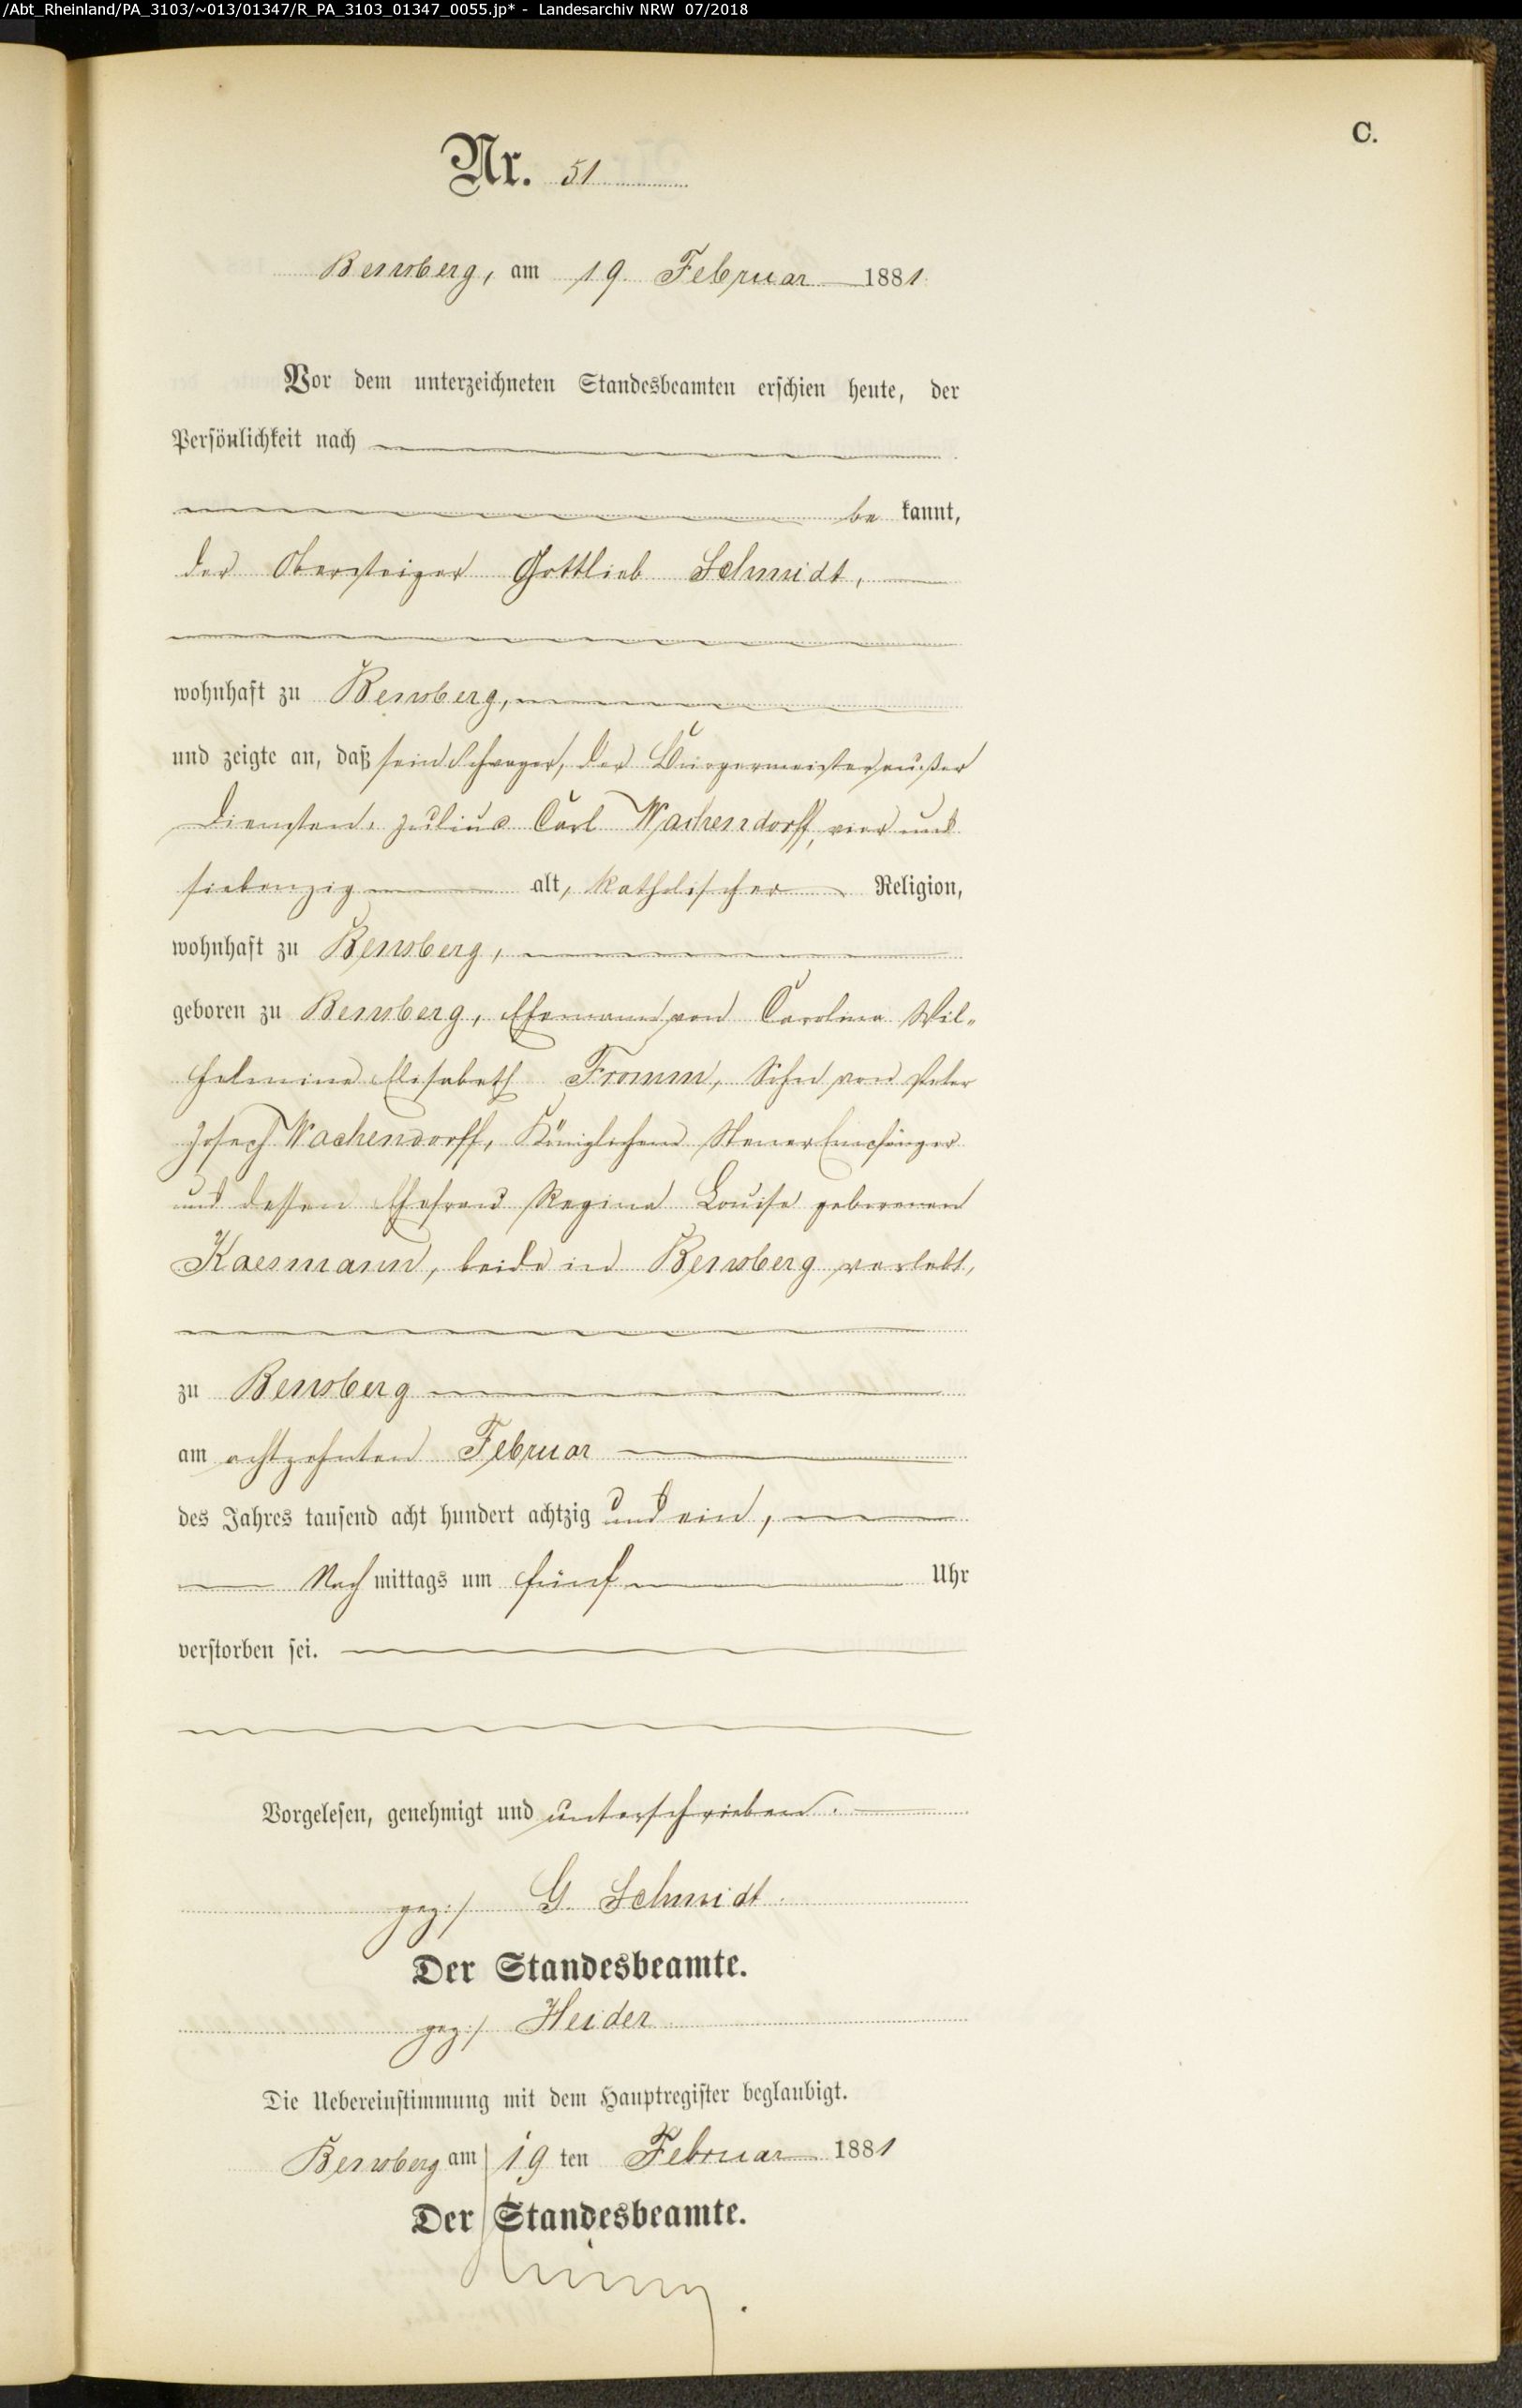 /Abt_Rheinland/PA_3103/~013/01347/R_PA_3103_01347_0055.jp* - Landesarchiv NRW 07/2018
C.
Nr. 51
Bensberg, am 19. Februar 1881
Vor dem unterzeichneten Standesbeamten erschien heute, der
Persönlichkeit nach
be kannt,
der Obersteiger Gottlieb Schmidt,
wohnhaft zu Bensberg,
und zeigte an, daß sein Schwager, der Bürgermeister außer
Diensten, Julius Carl Wachendorff, vier und
siebenzig alt, katholischer Religion,
wohnhaft zu Bensberg,
geboren zu Bensberg, Ehemann von Carolina Wil-
helmine Elisabeth Fromm, Sohn von Peter
Joseph Wachendorff, Königlichem Steuer Empfänger
und dessen Ehefrau Regina Louise geborenen
Kaesmann, beide in Bensberg verlebt,
zu Bensberg
am achtzehnten Februar
des Jahres tausend acht hundert achtzig und ein,
Nach mittags um fünf Uhr
verstorben sei.
Vorgelesen, genehmigt und unterschrieben.
gez:/ G. Schmidt.
Der Standesbeamte.
gez:/ Heider
Die Uebereinstimmung mit dem Hauptregister beglaubigt.
Bensberg am 19 ten Februar 1881
Der Standesbeamte.